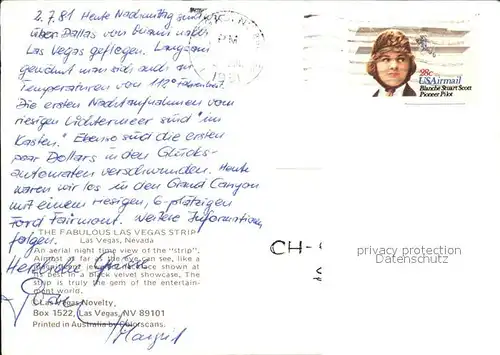 2.7.81 Heute Nachmittag sind wir
über Dallas von Miami nach
Las Vegas geflogen. Langsam
gewöhnt man sich auch an
Temperaturen von 112° Fahrenheit.
Die ersten Nachtaufnahmen vom
riesigen Lichtermeer sind "im
Kasten." Ebenso sind die ersten
paar Dollars in den Glücks-
automaten verschwunden. Heute
waren wir los in den Grand Canyon
mit einem riesigen, 6-plätzigen
Ford Fairmont. Weitere Informationen
folgen.
THE FABULOUS LAS VEGAS STRIP
Las Vegas, Nevada
An aerial night time view of the "strip".
Almost as far as the eye can see, like a
shown at
its best in a black velvet showcase, The
strip is truly the gem of the entertain-
ment world.
Herzliche Grüsse
© Las Vegas Novelty,
Box 1522, Las Vegas, NV 89101
Printed in Australia by Colorscans.
Margrit
1981
28c
USAirmail
Blanche Stuart Scott
Pioneer Pilot
CH-
privacy protection
Datenschutz